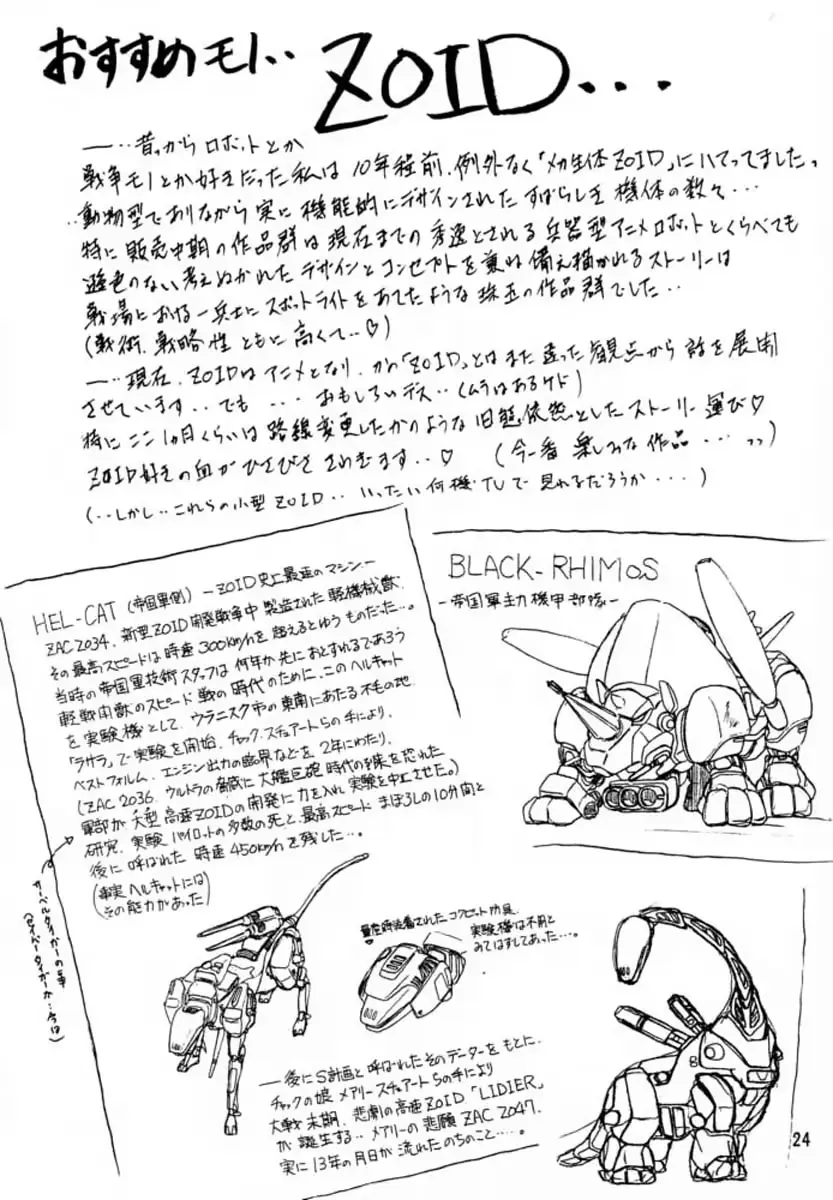 おすすめモノ‥ ZOID...
―‥昔っからロボットとか
戦争モノとか好きだった私は10年程前、例外なく「メカ生体ZOID」にハマってました。
‥動物型でありながら実に機能的にデザインされたすばらしき機体の数々…
特に販売中期の作品群は現在までの秀逸とされる兵器型アニメロボットとくらべても
遜色のない考えぬかれたデザインとコンセプトを兼ね備え描かれるストーリーは
戦場における一兵士にスポットライトをあてたような珠玉の作品群でした‥
(戦術、戦略性ともに高くて‥♡)
―‥現在、ZOIDはアニメとなり、かの「ZOID」とはまた違った観点から話を展開
させています‥でも …おもしろいデス‥(ムラはあるケド)
特にここ1ヵ月くらいは路線変更したかのような旧態依然としたストーリー運び♡
ZOID好きの血がひさびささわぎます‥♡ (今一番楽しみな作品…っっ)
(‥しかし‥これらの小型ZOID‥いったい何機TVで見れるだろうか…)
HEL-CAT (帝国軍側) ―ZOID史上最速のマシン―
ZAC2034、新型ZOID開発戦争中製造された軽機械獣、
その最高スピードは時速300km/hを超えるとゆうものだった…。
当時の帝国軍技術スタッフは何年か先におとずれるであろう
軽戦闘獣のスピード戦の時代のために、このヘルキャット
を実験機として、ウラニスク市の東南にあたる不毛の地、
「ラサラ」で実験を開始、チャック、スチュアートらの手により、
ベストフォルム、エンジン出力の臨界などを2年にわたり、
(ZAC2036、ウルトラの脅威に大艦巨砲時代の到来を恐れた
軍部が大型高速ZOIDの開発に力を入れ実験を中止させた。)
研究、実験パイロットの多数の死と、最高スピードまぼろしの10分間と
後に呼ばれた時速450km/hを残した…。
(事実ヘルキャットには
その能力があった)
サーベルタイガーの事
(セイバータイガーか…今は)
量産時装着されたコクピット防具、
実験機は不用と
みてはずしてあった…。
―後にS計画と呼ばれたそのデーターをもとに、
チャックの娘メアリースチュアートらの手により
大戦末期、悲劇の高速ZOID「LIDIER」
が誕生する‥メアリーの悲願ZAC2047、
実に13年の月日が流れたのちのこと…。
BLACK-RHIMOS
―帝国軍主力機甲部隊―
24